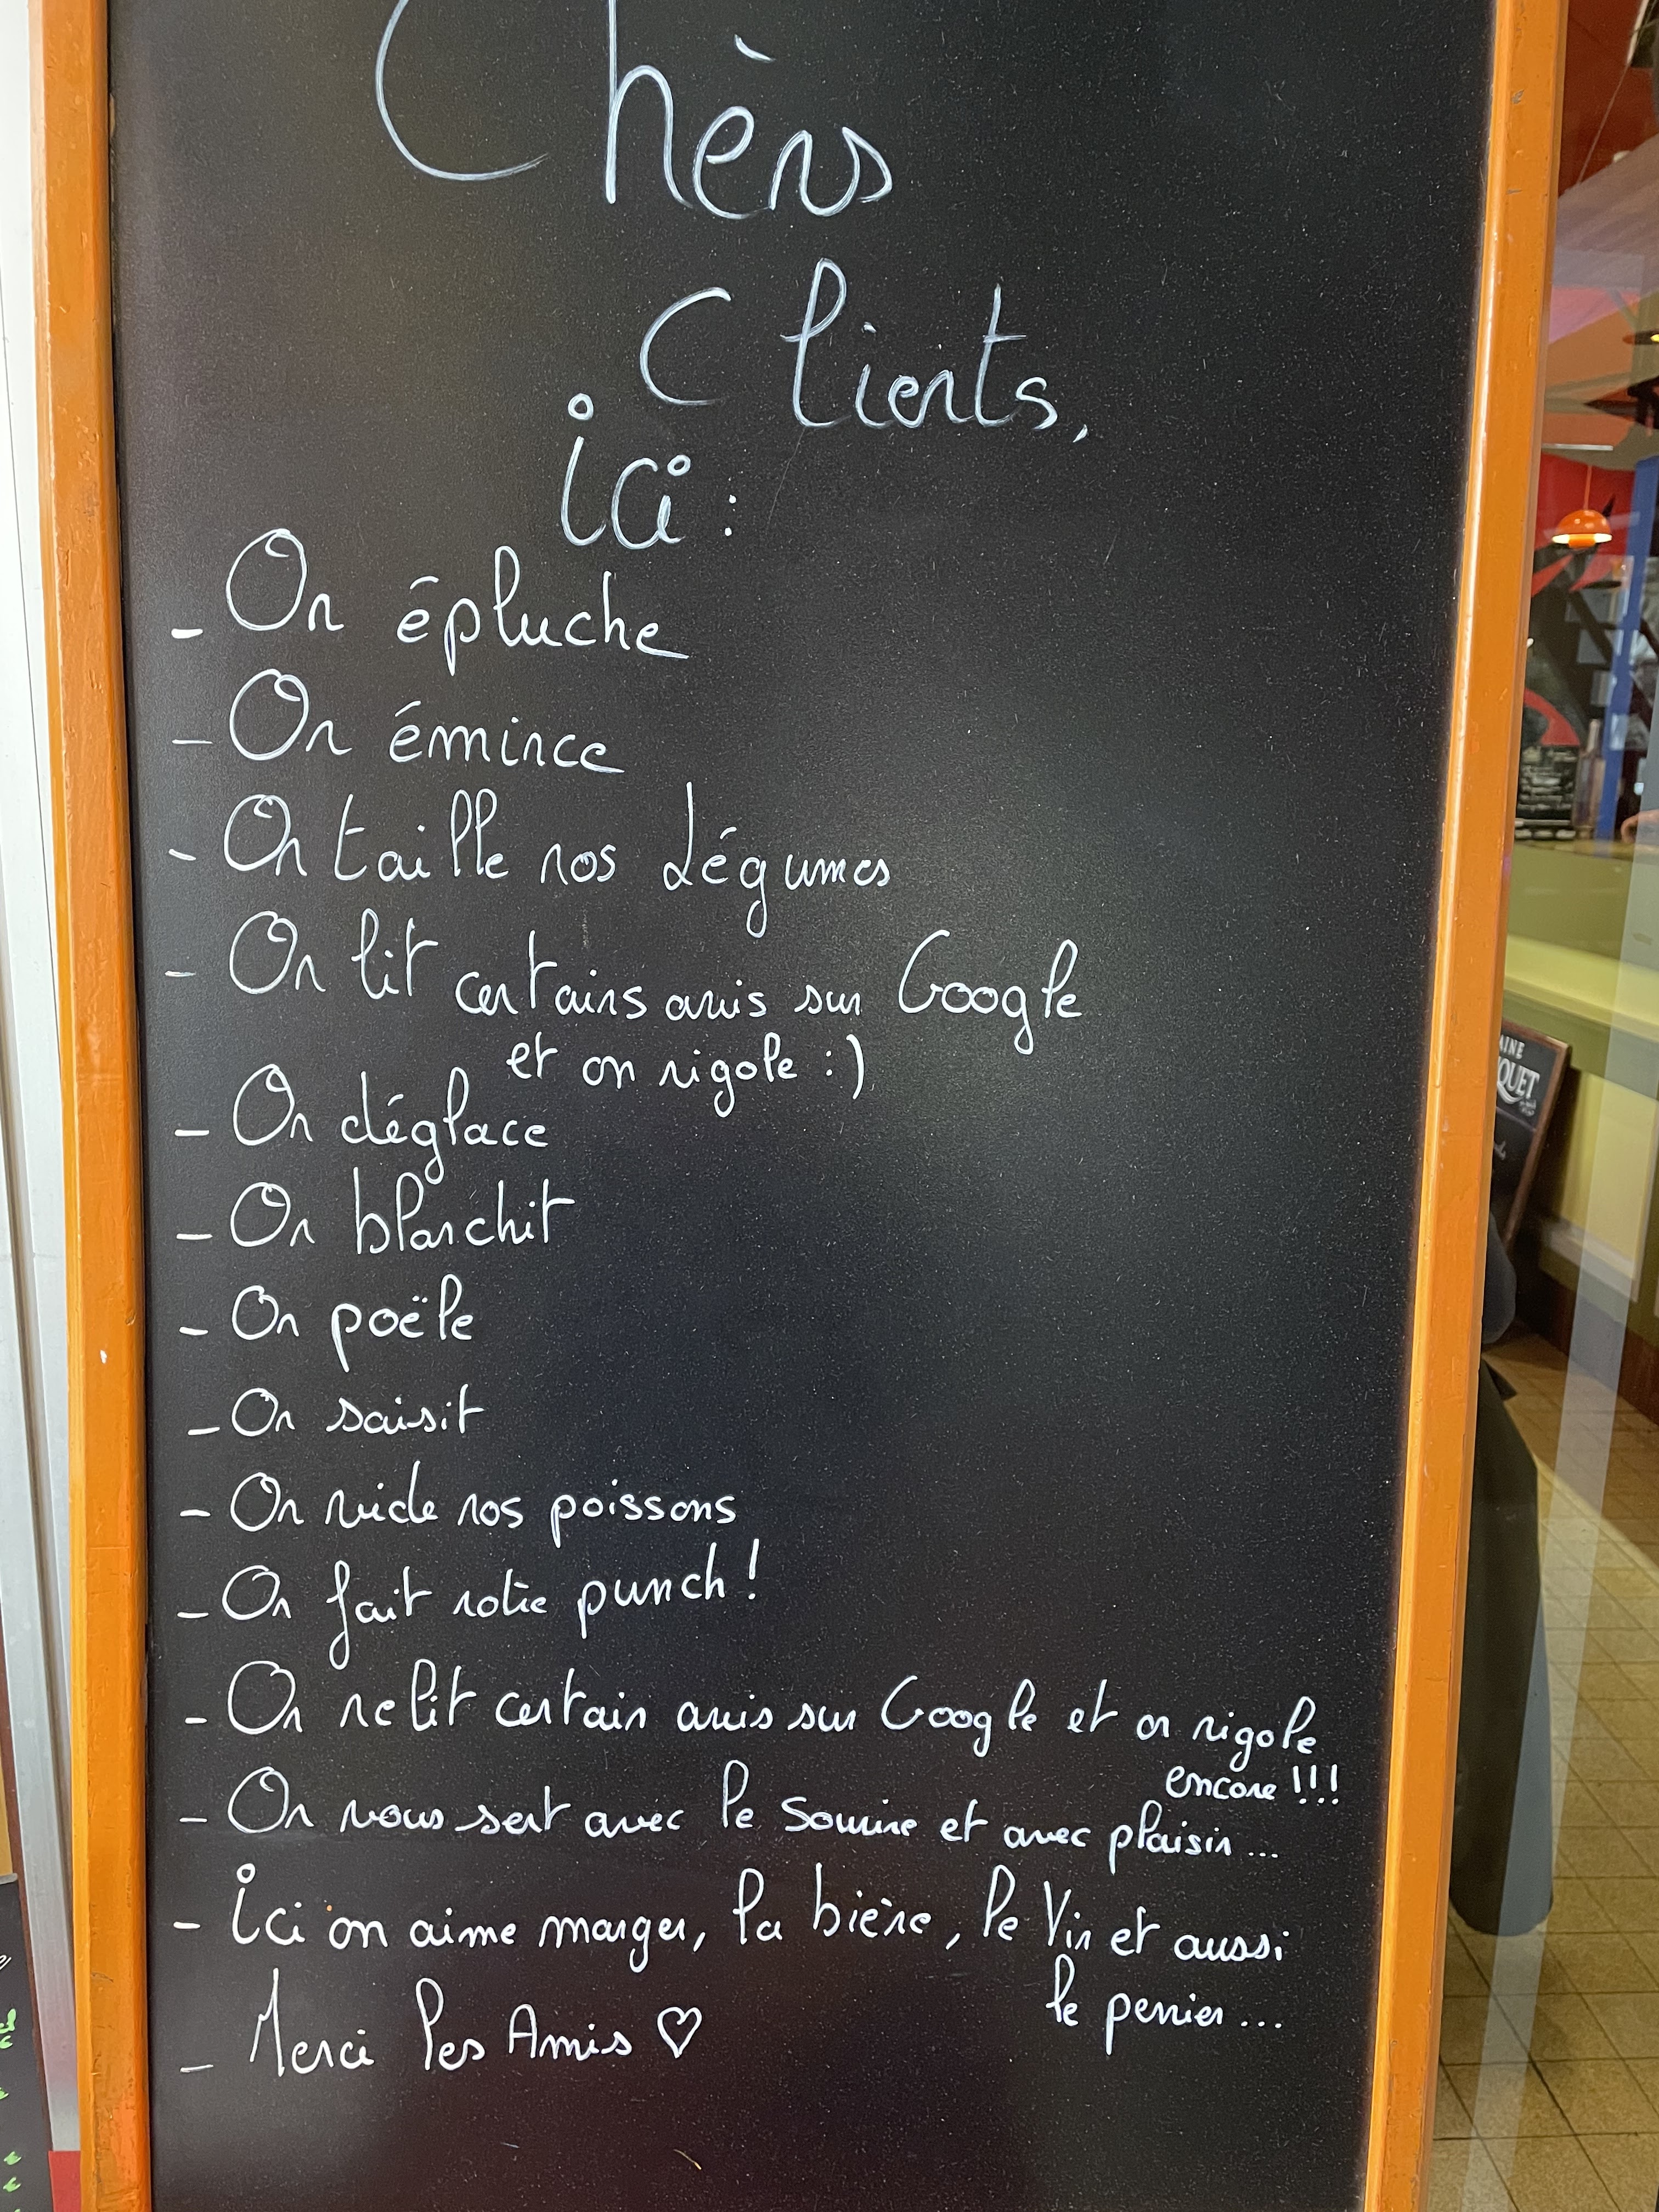 Chèrs
Clients,
ici :
- On épluche
- On émince
- On taille nos légumes
- On lit certains avis sur Google
et on rigole :)
- On déglace
- On blanchit
- On poële
- On saisit
- On vide nos poissons
- On fait notre punch !
- On relit certain avis sur Google et on rigole
encore !!!
- On vous sert avec le sourire et avec plaisir ...
- ici on aime manger, la bière, le Vin et aussi
le perrier ...
- Merci les Amis ♡
AINE
QUET